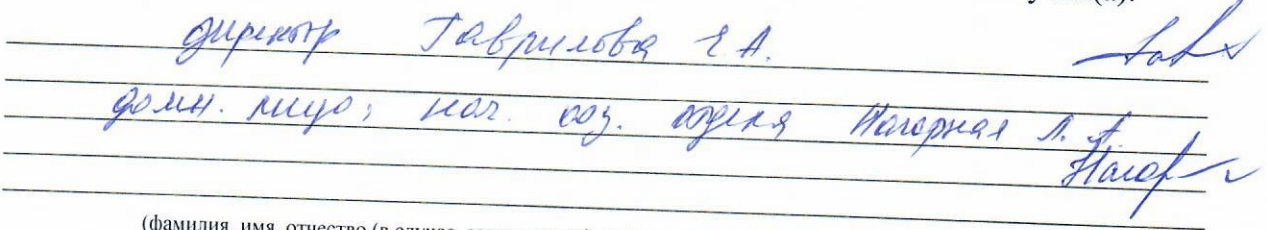 директор Гаврилова Е.А.
долж. лицо, нач. хоз. отдела Нагорная Л.А.
(фамилия, имя, отчество (в случае